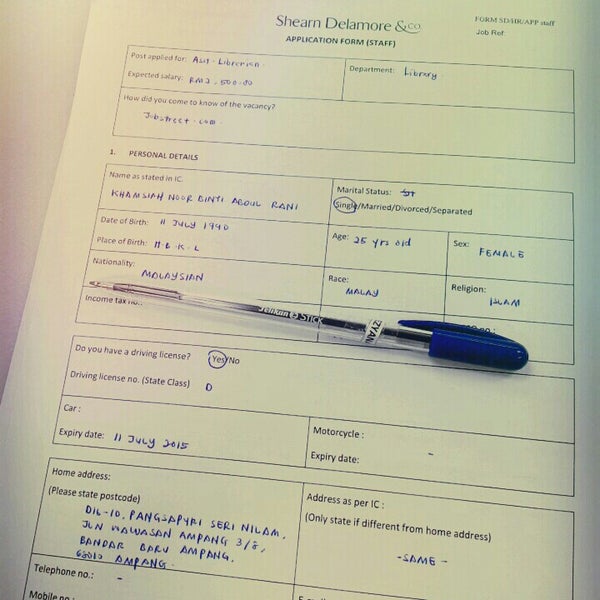 Shearn Delamore &co.
FORM SD/HR/APP staff
Job Ref:
APPLICATION FORM (STAFF)
Post applied for: Asst. Librarian.
Department: Library
Expected salary: RM2,500.00
How did you come to know of the vacancy?
Jobstreet.com.
1. PERSONAL DETAILS
Name as stated in IC.
KHAMSIAH NOOR BINTI ABDUL RANI
Marital Status:
Single/Married/Divorced/Separated
Date of Birth: 11 JULY 1990
Age: 25 yrs old
Sex: FEMALE
Place of Birth: H.B.K.L
Nationality: MALAYSIAN
Race: MALAY
Religion: ISLAM
Income tax no.:
Pelikan STICK
ZYAN
Do you have a driving license? Yes/No
Driving license no. (State Class) D
Car :
Motorcycle :
Expiry date: 11 JULY 2015
Expiry date: -
Home address:
(Please state postcode)
Address as per IC :
(Only state if different from home address)
D16-10, PANGSAPURI SERI NILAM,
JLN WAWASAN AMPANG 3/8,
BANDAR BARU AMPANG,
68010 AMPANG.
- SAME -
Telephone no.: -
Mobile no.: